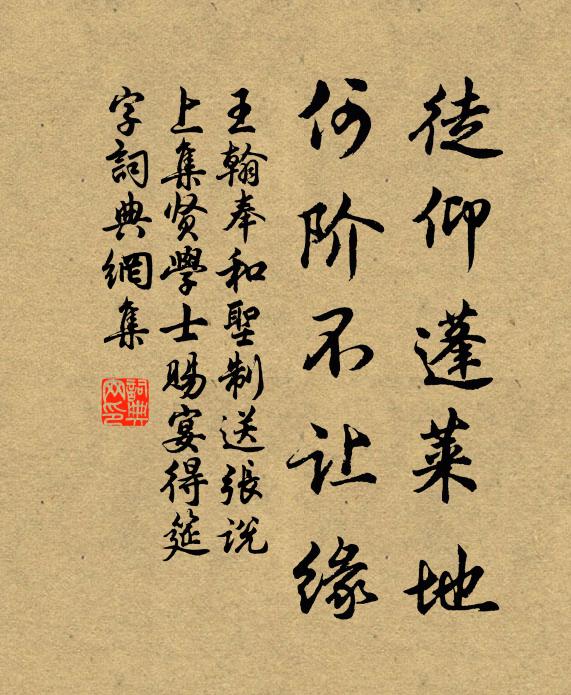 徒仰蓬莱地
何阶不让缘
王翰奉和聖制送張说
上集贤學士赐宴得筵
字詞典網集
詞典网印